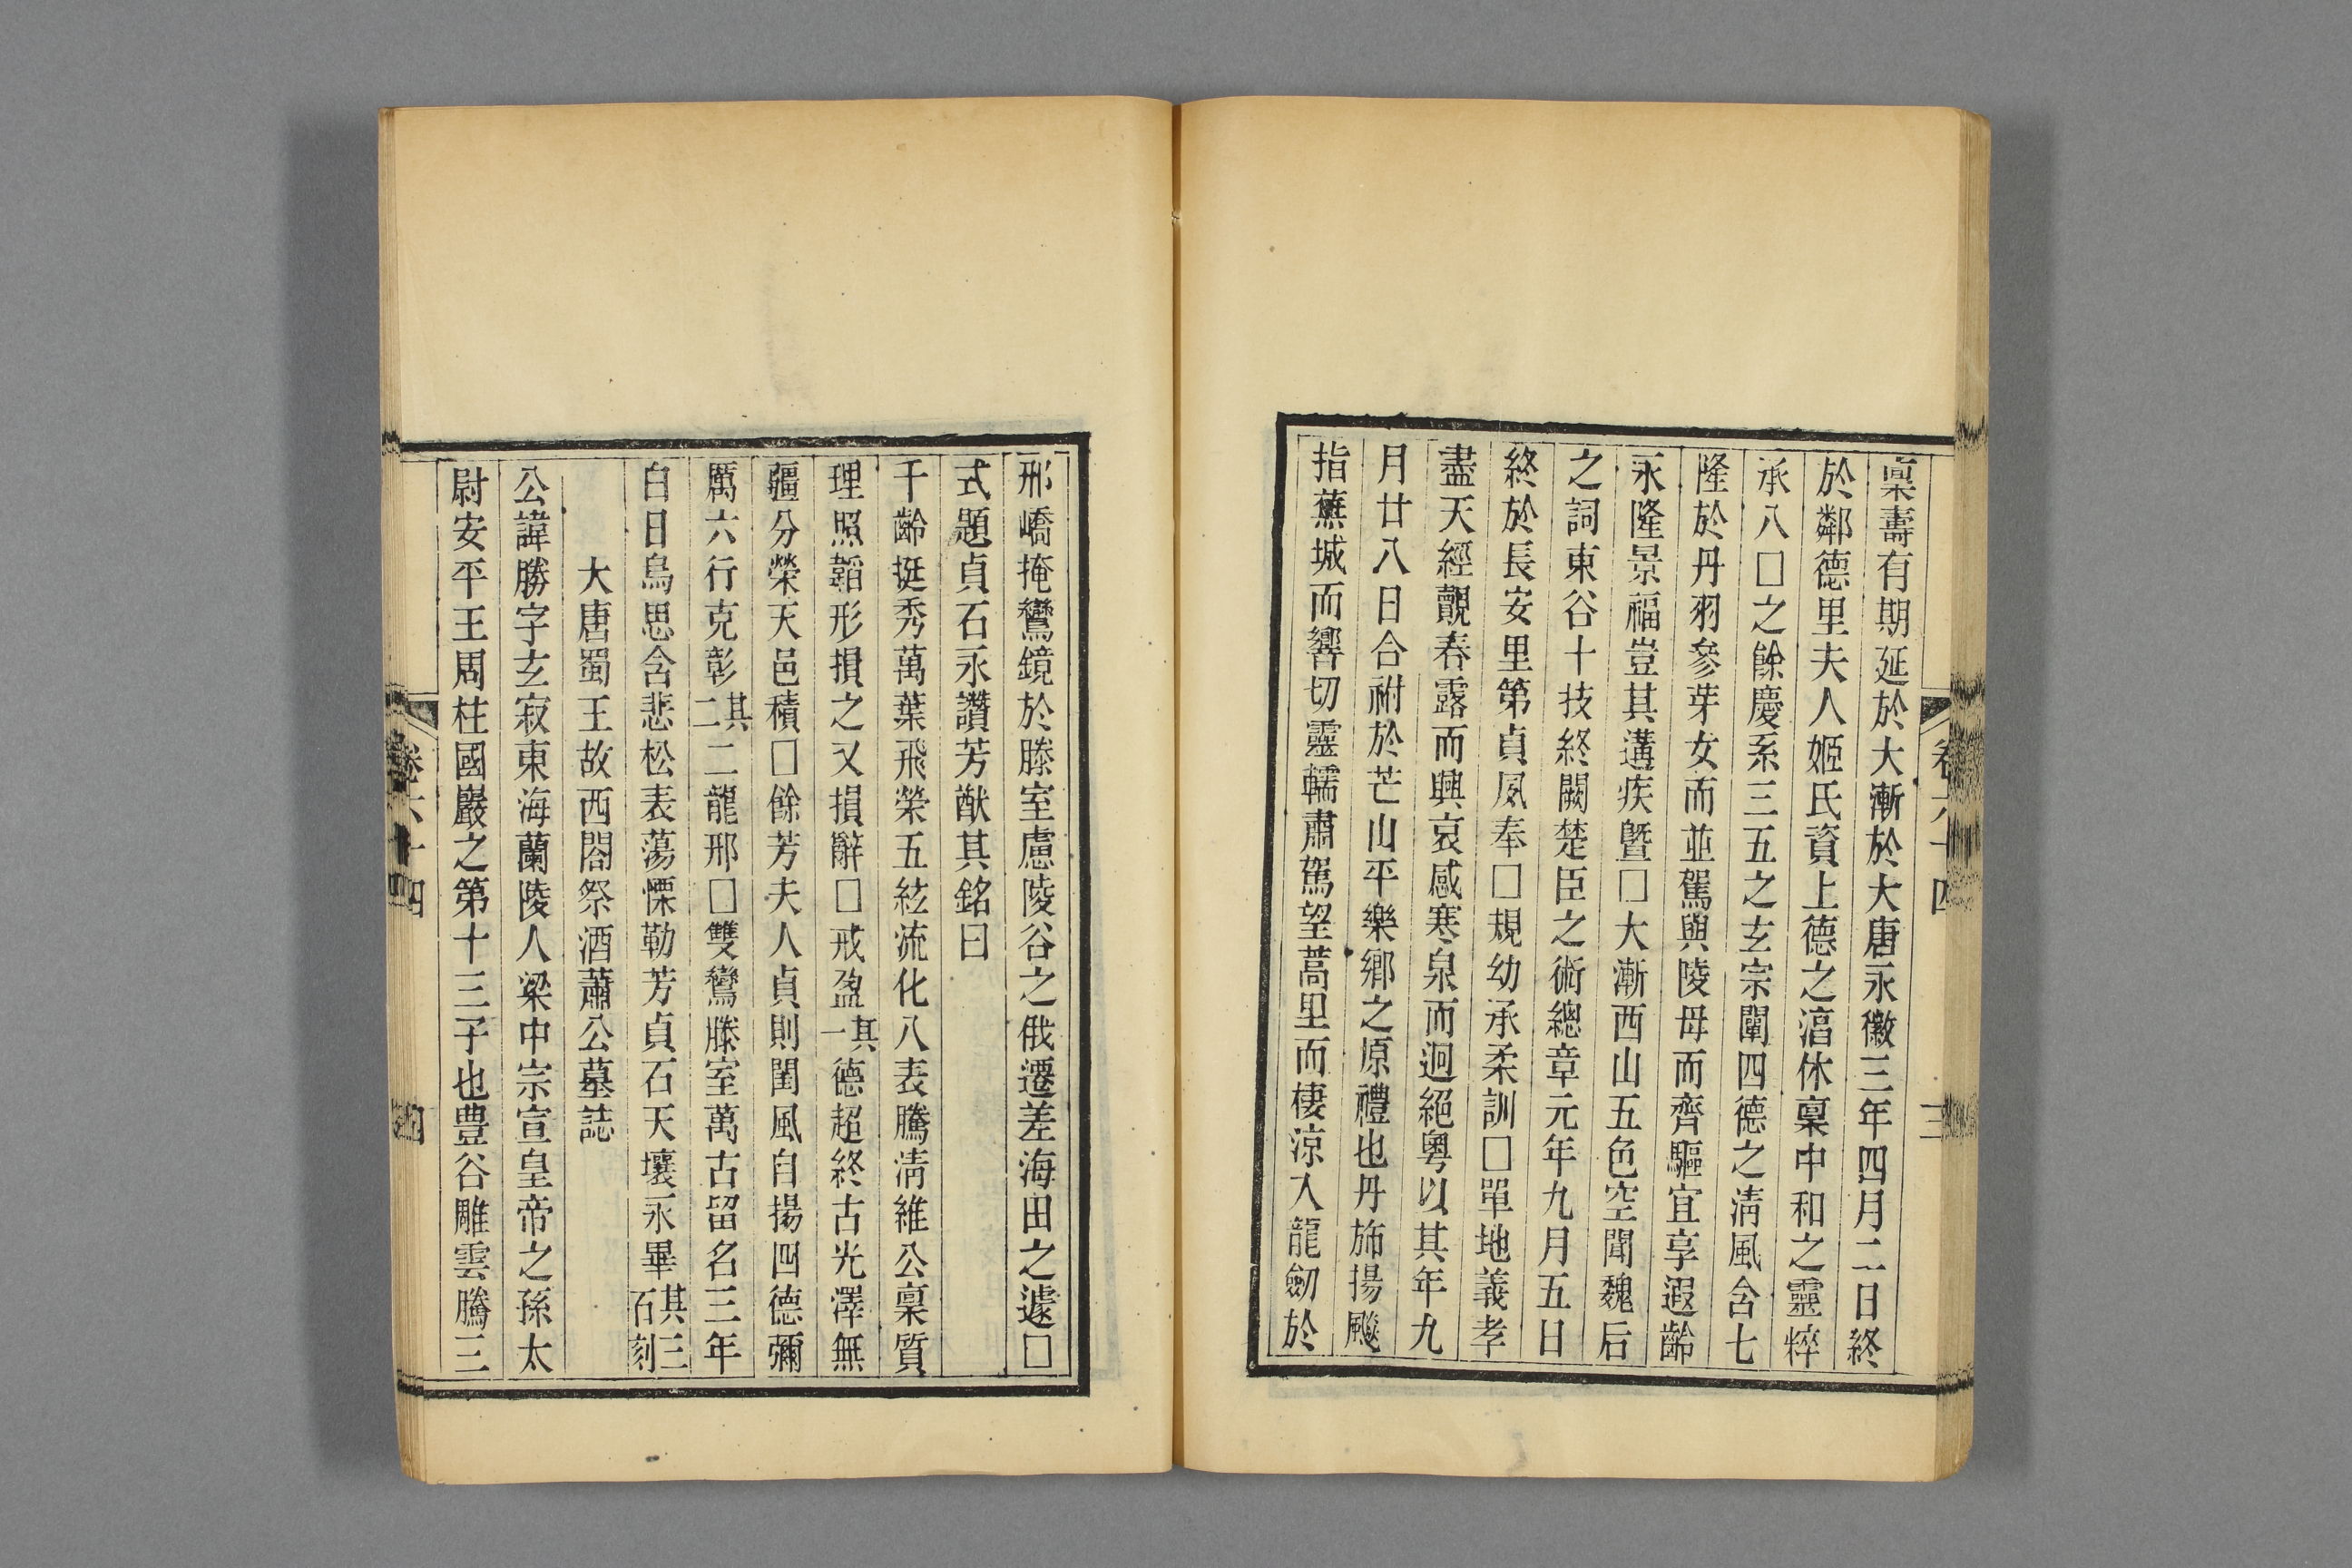 稟壽有期延於大漸於大唐永徽三年四月二日終
於鄰德里夫人姬氏資上德之湻休稟中和之靈粹
承八□之餘慶系三五之玄宗闡四德之淸風含七
隆於丹羽參芽女而並駕與陵母而齊驅宜享遐齡
永隆景福豈其遘疾曁□大漸西山五色空聞魏后
之詞東谷十技終闕楚臣之術總章元年九月五日
終於長安里第貞夙奉□規幼承柔訓□單地義孝
盡天經觀春露而興哀感寒泉而迥絕粵以其年九
月廿八日合祔於芒山平樂鄉之原禮也丹旐揚飈
指蕪城而響切靈轜肅駕望蒿里而棲涼入龍劒於
卷六十四
三
邢嶠掩鸞鏡於滕室慮陵谷之俄遷差海田之遽□
式題貞石永讚芳猷其銘曰
千齡挺秀萬葉飛榮五絃流化八表騰淸維公稟質
理照韜形損之又損辭□戒盈其一德超終古光澤無
疆分榮天邑積□餘芳夫人貞則閨風自揚四德彌
厲六行克彰其二二龍邢□雙鸞滕室萬古留名三年
白日鳥思含悲松表蕩慄勒芳貞石天壤永畢其三石刻
大唐蜀王故西閤祭酒蕭公墓誌
公諱勝字玄寂東海蘭陵人梁中宗宣皇帝之孫太
尉安平王周柱國巖之第十三子也豊谷雕雲騰三
卷六十四
四